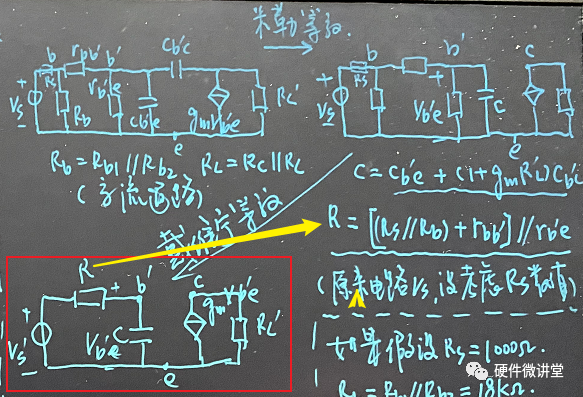 米勒等效
b rbb' b' Cb'c
+ Rs
Vs Rb rb'e Cb'e gmVb'e RL'
e
b b' c
+ Rs +
Vs Vb'e C
e
Rb = Rb1 // Rb2 RL' = Rc // RL
(交流通路)
C = Cb'e + (1+gmRL')Cb'c
戴维宁等效
R = [(Rs//Rb) + rbb'] // rb'e
R + b' c gmVb'e
+
Vs' Vb'e C RL'
e
如果假设 Rs = 1000Ω.
= Rb1//Rb2 = 18kΩ.
硬件微讲堂